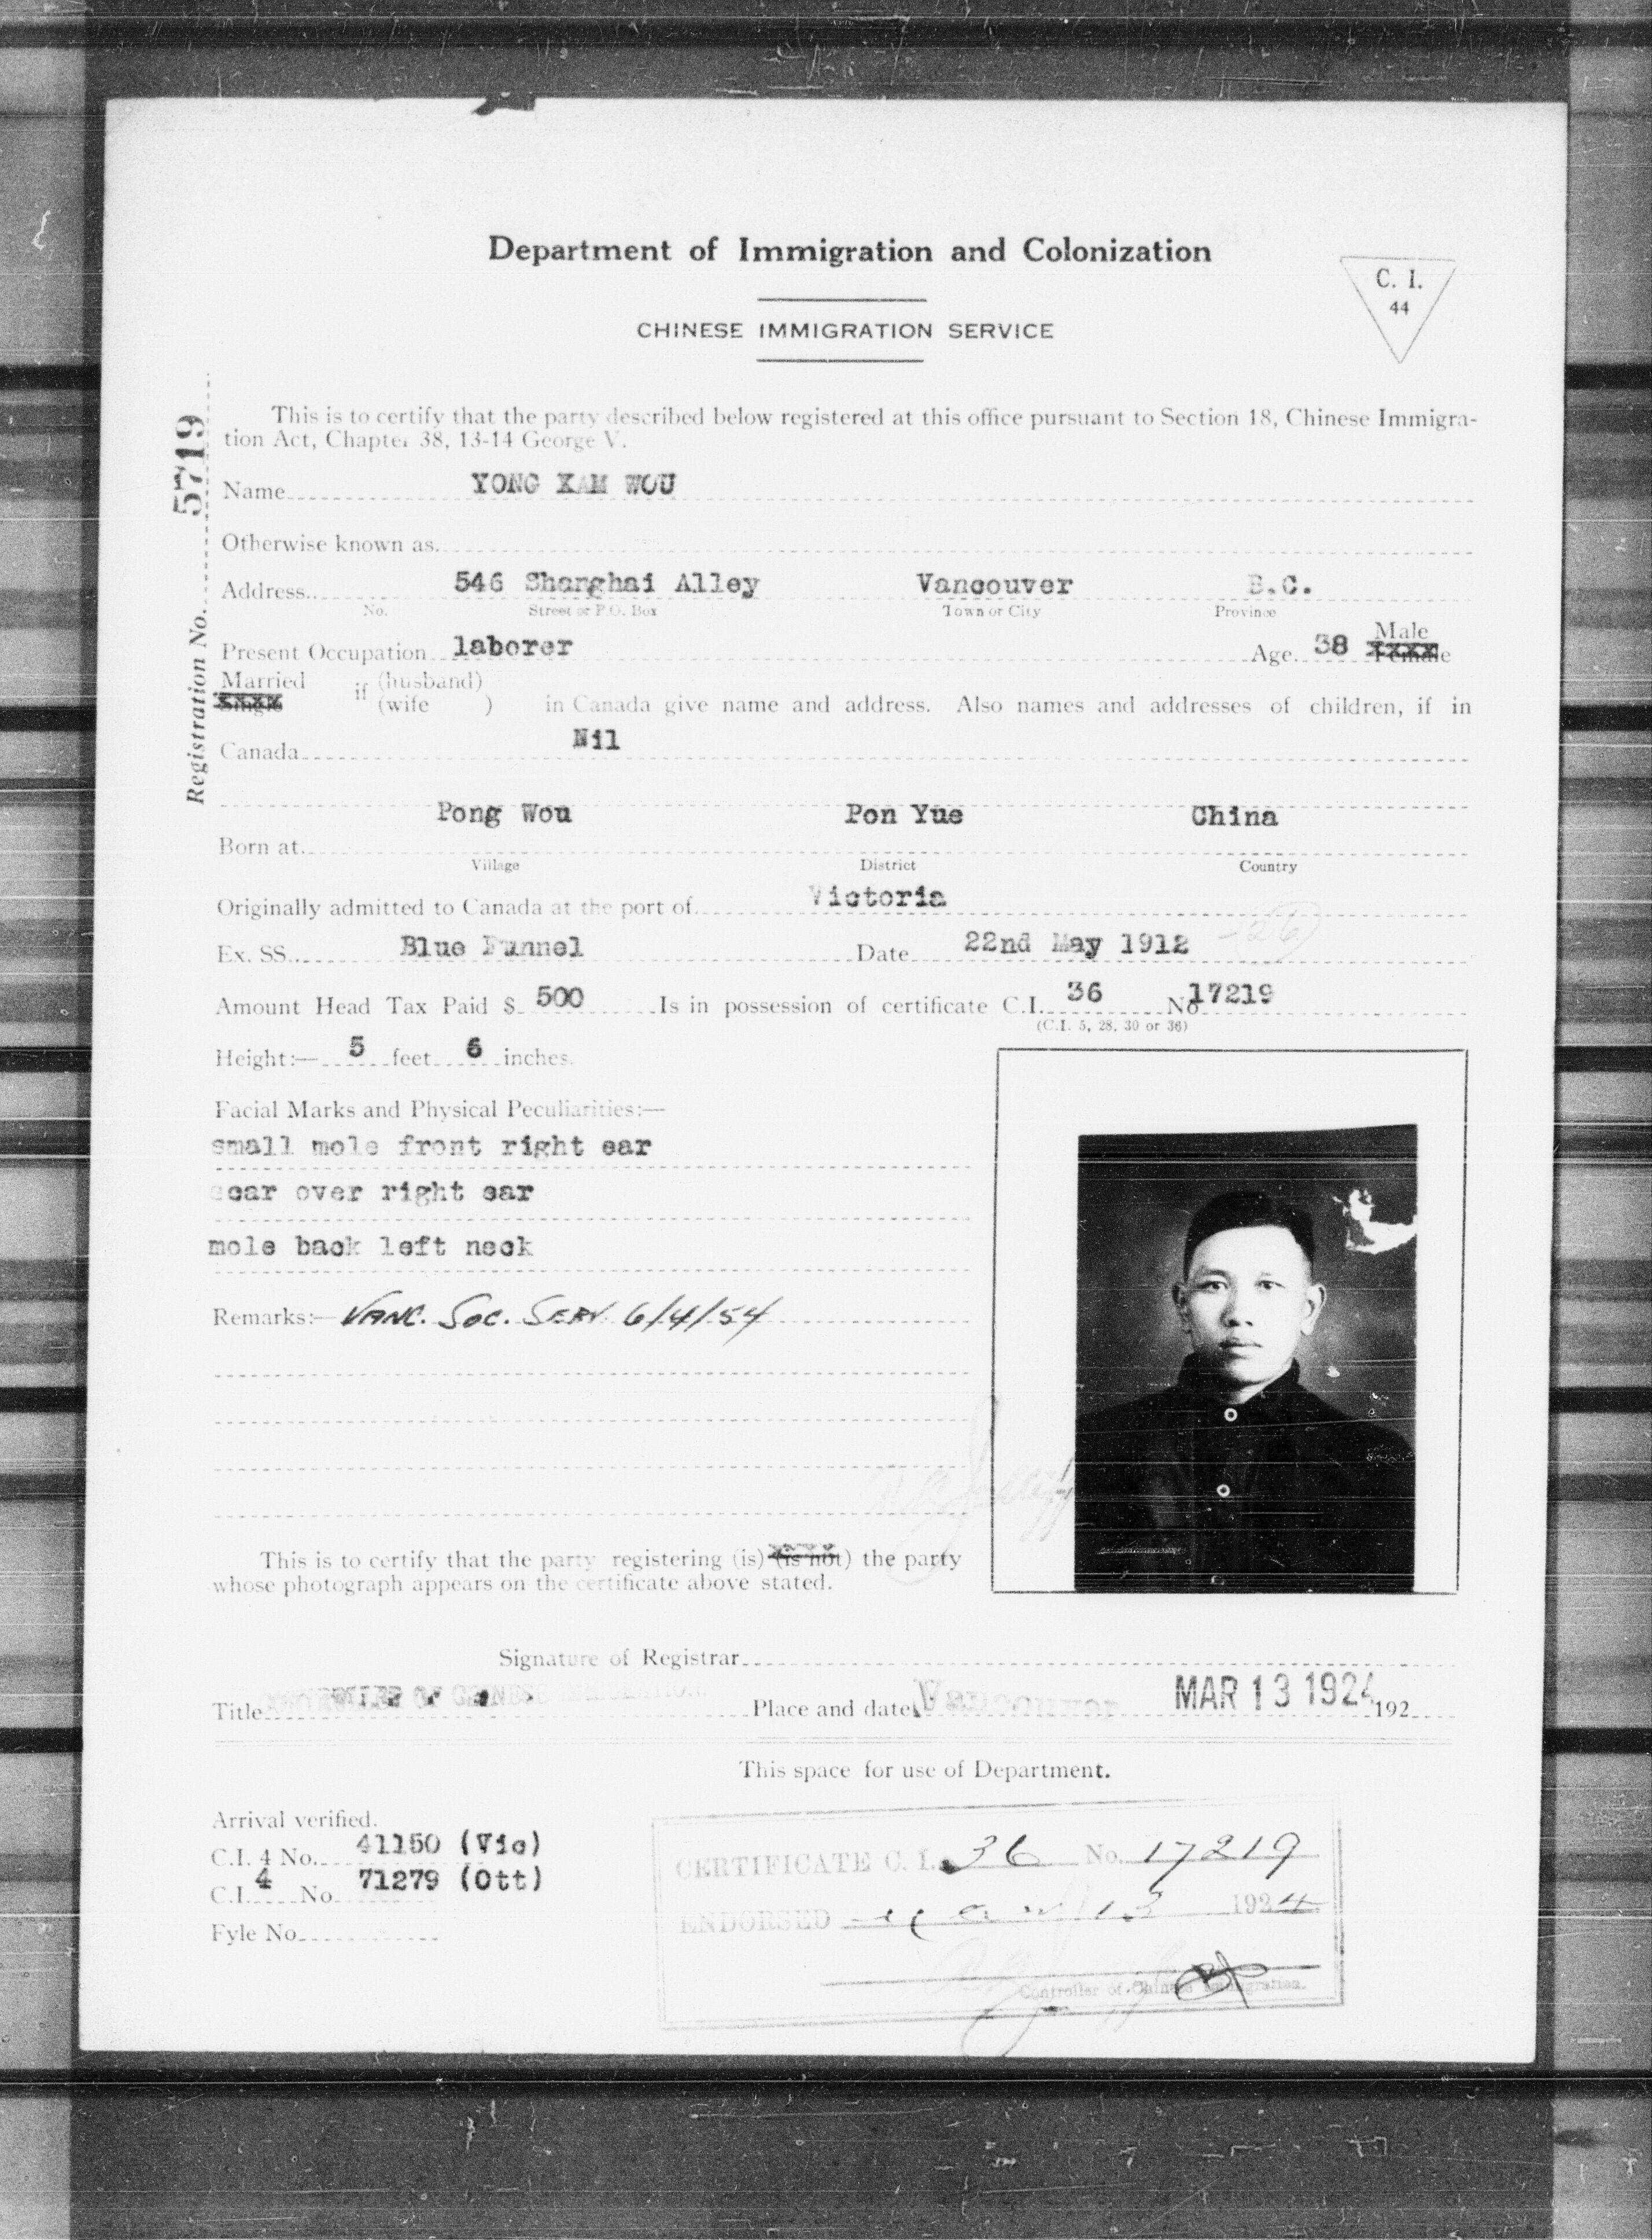 Department of Immigration and Colonization
CHINESE IMMIGRATION SERVICE
C. I.
44
Registration No. 5719
This is to certify that the party described below registered at this office pursuant to Section 18, Chinese Immigra-
tion Act, Chapter 38, 13-14 George V.
Name YONG KAM WOU
Otherwise known as
Address 546 Shanghai Alley Vancouver B.C.
No. Street or P.O. Box Town or City Province
Present Occupation laborer Age 38 Male
Female
Married if (husband)
Single (wife ) in Canada give name and address. Also names and addresses of children, if in
Canada Nil
Pong Wou Pon Yue China
Born at
Village District Country
Originally admitted to Canada at the port of Victoria
Ex. SS. Blue Funnel Date 22nd May 1912 (26)
Amount Head Tax Paid $ 500 Is in possession of certificate C.I. 36 No 17219
(C.I. 5, 28, 30 or 36)
Height:— 5 feet 6 inches.
Facial Marks and Physical Peculiarities:—
small mole front right ear
scar over right ear
mole back left neck
Remarks:— VANC. SOC. SERV. 6/4/54
This is to certify that the party registering (is) (is not) the party
whose photograph appears on the certificate above stated.
Signature of Registrar
Title CONTROLLER OF CHINESE IMMIGRATION. Place and date Vancouver MAR 13 1924 192
This space for use of Department.
Arrival verified.
C.I. 4 No. 41150 (Vic)
C.I. 4 No. 71279 (Ott)
Fyle No.
CERTIFICATE C. I. 36 No. 17219
ENDORSED Mar 13 1924
Controller of Chinese Immigration.